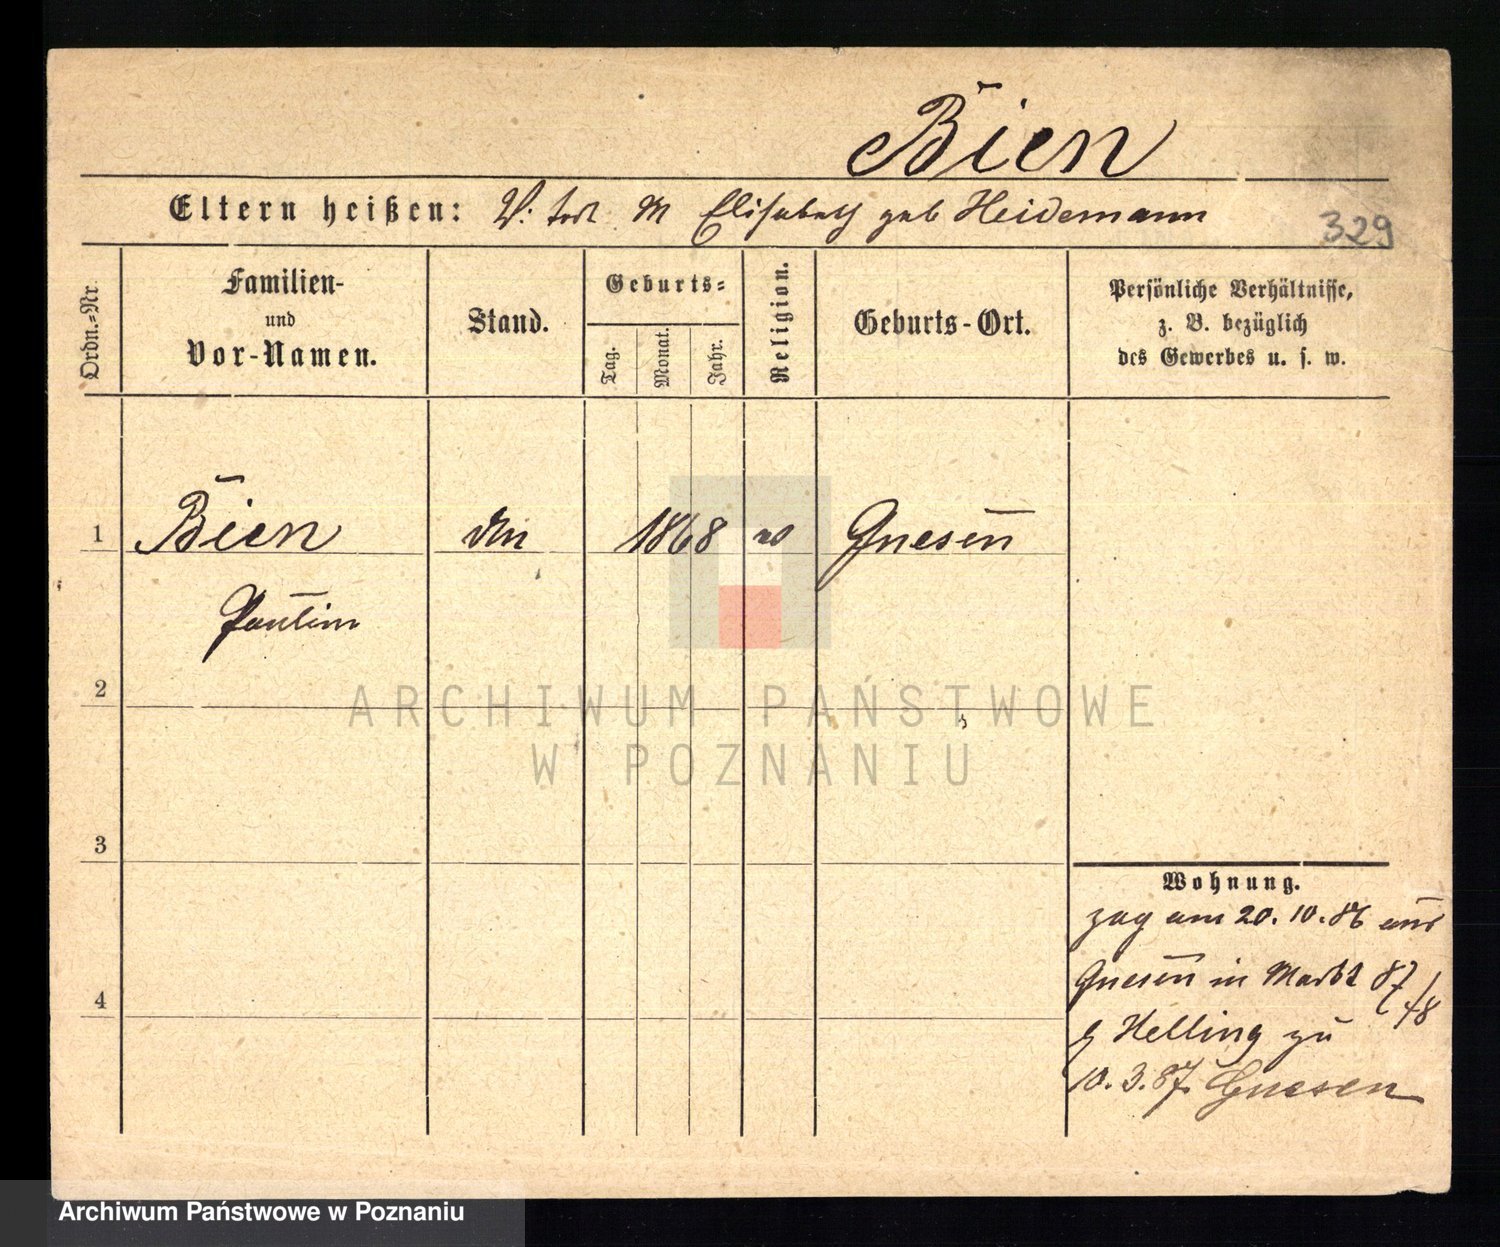 Bien
Eltern heißen: V: todt M Elisabeth geb Heidemann
329
Ordn.=Nr.
Familien-
und
Vor-Namen.
Stand.
Geburts=
Tag.
Monat.
Jahr.
Religion.
Geburts-Ort.
Persönliche Verhältnisse,
z. B. bezüglich
des Gewerbes u. s. w.
1 Bien 1868 Gnesen
Paulina
2
ARCHIWUM PAŃSTWOWE
W POZNANIU
3
Wohnung.
zog am 20. 10. 86 aus
Gnesen in Markt 87
4
Helling zu
10. 3. 87. Gnesen
Archiwum Państwowe w Poznaniu